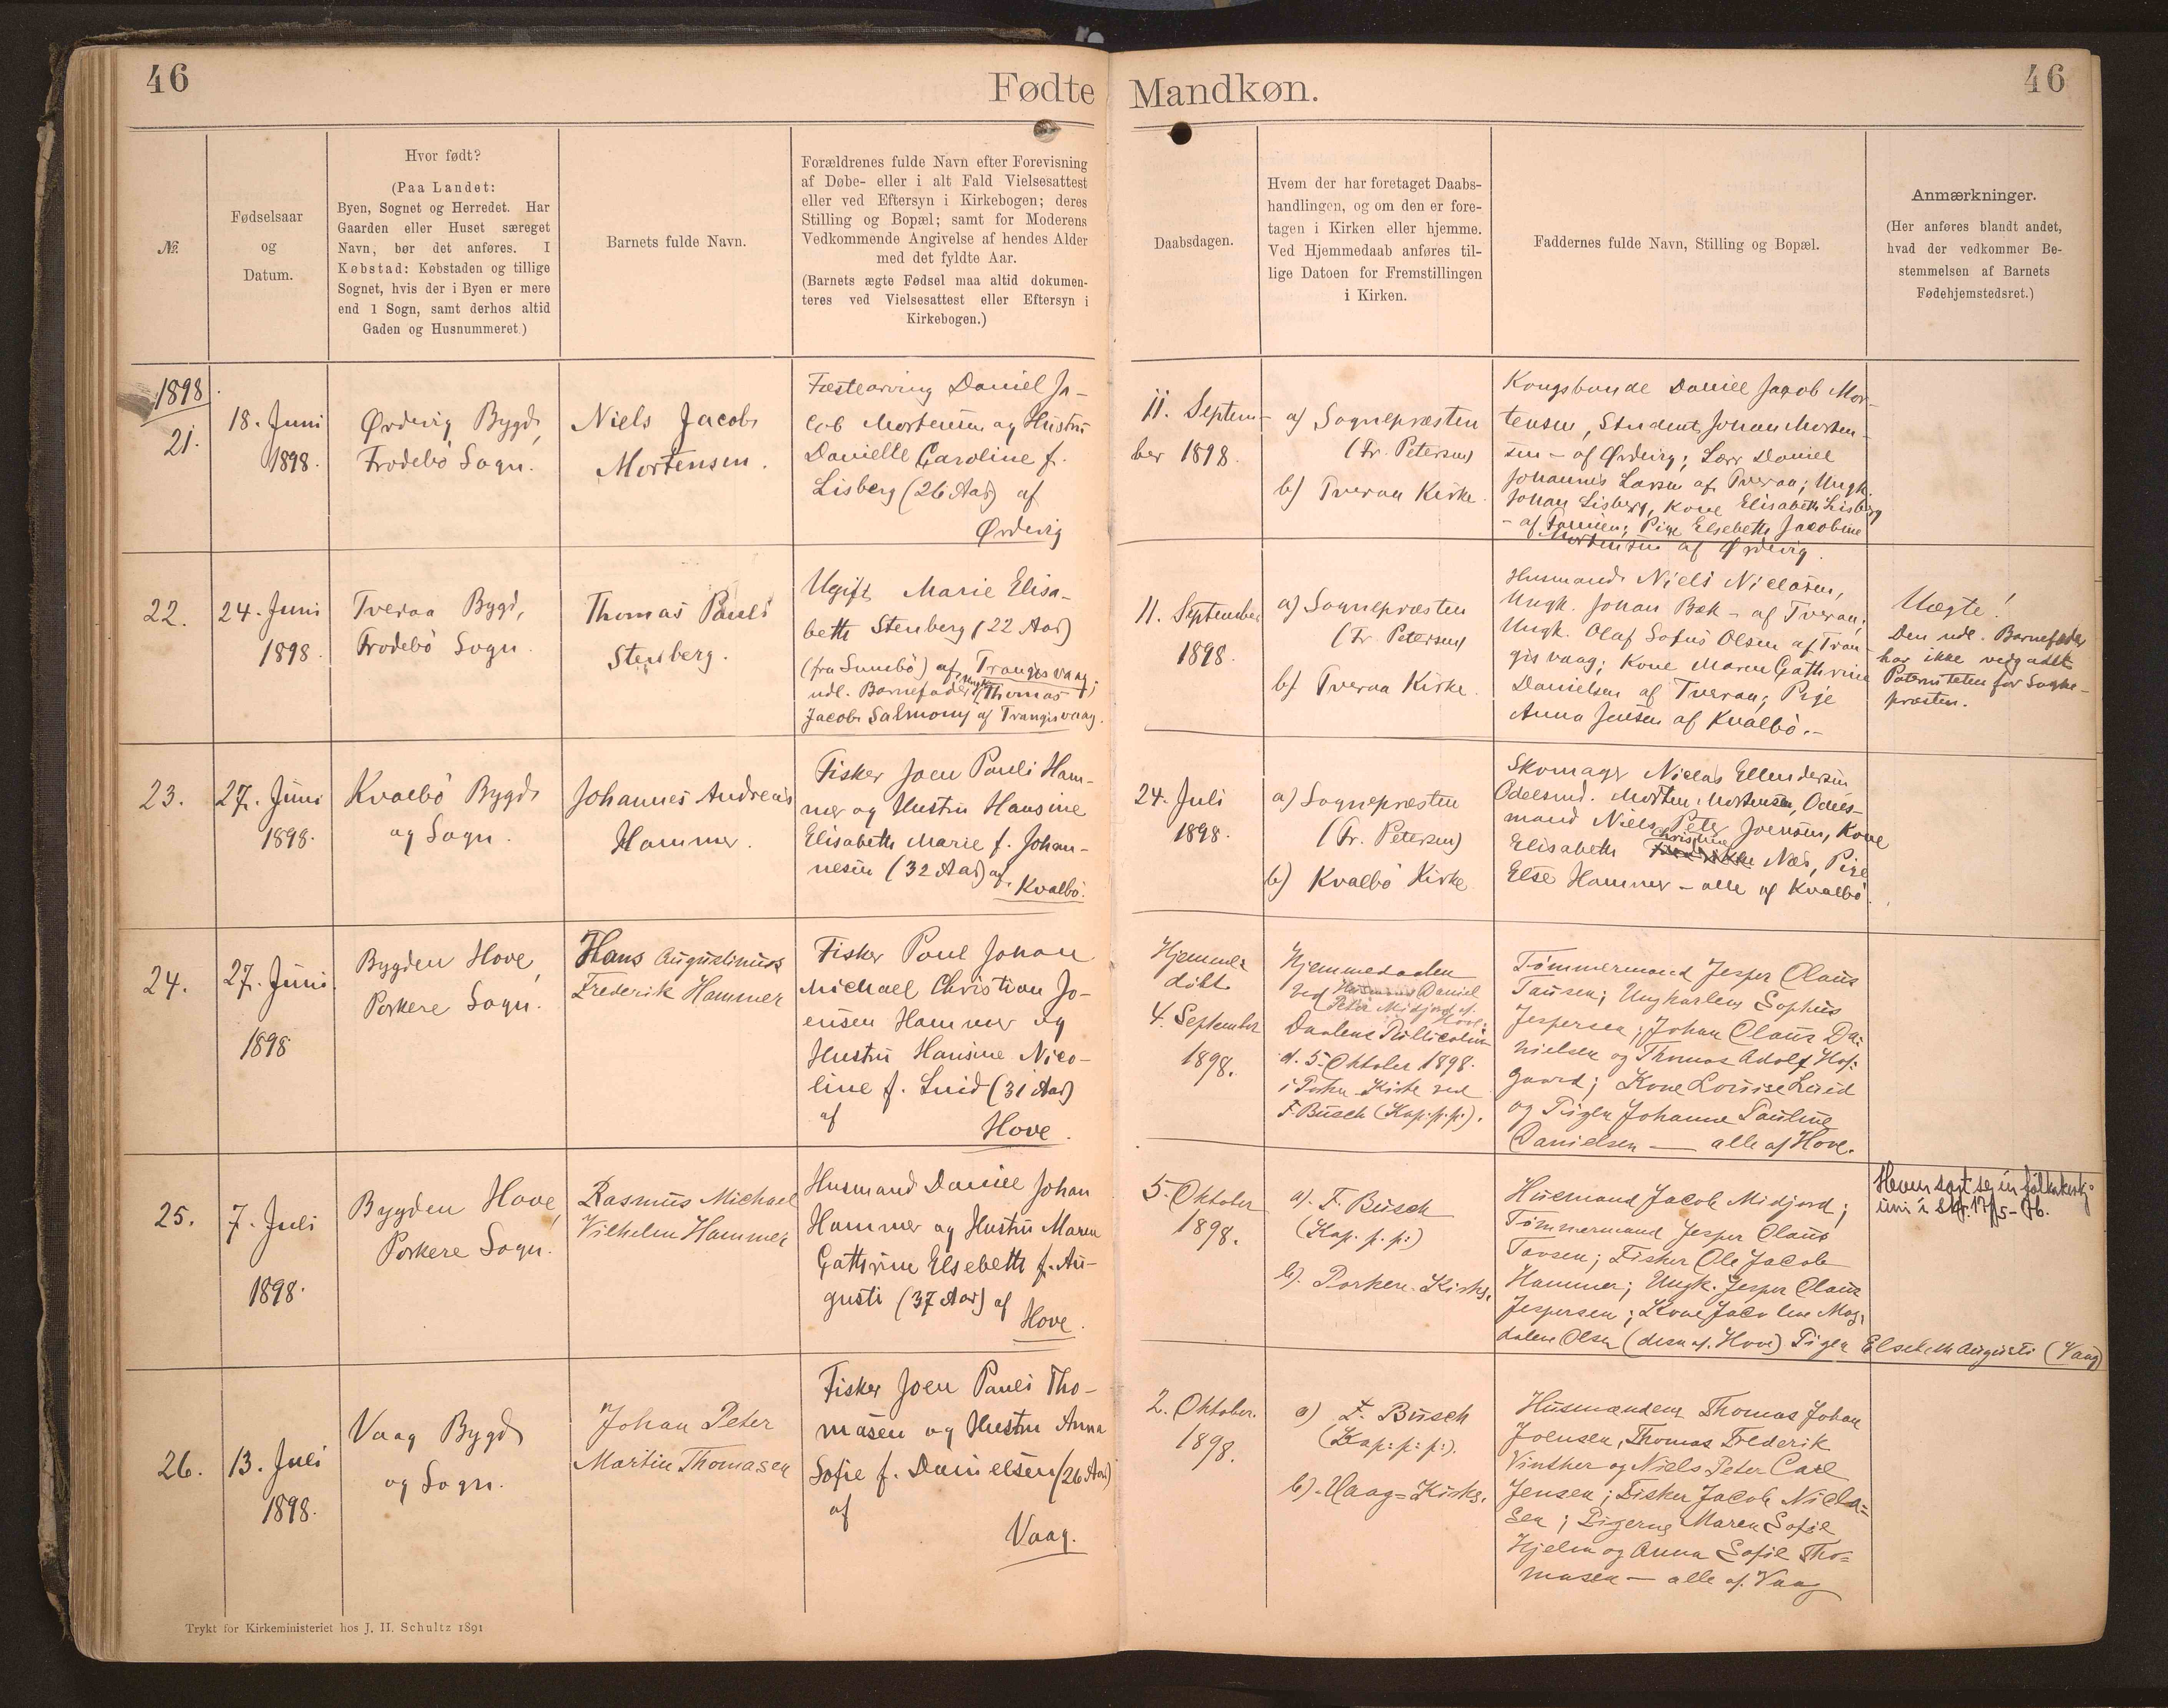 46
Fødte
Mandkøn.
46
№
Fødselsaar
og
Datum.
Hvor født?
(Paa Landet:
Byen, Sognet og Herredet. Har
Gaarden eller Huset særeget
Navn, bør det anføres. I
Købstad: Købstaden og tillige
Sognet, hvis der i Byen er mere
end 1 Sogn, samt derhos altid
Gaden og Husnummeret.)
Barnets fulde Navn.
Forældrenes fulde Navn efter Forevisning
af Døbe- eller i alt Fald Vielsesattest
eller ved Eftersyn i Kirkebogen; deres
Stilling og Bopæl; samt for Moderens
Vedkommende Angivelse af hendes Alder
med det fyldte Aar.
(Barnets ægte Fødsel maa altid dokumen-
teres ved Vielsesattest eller Eftersyn i
Kirkebogen.)
Daabsdagen.
Hvem der har foretaget Daabs-
handlingen, og om den er fore-
tagen i Kirken eller hjemme.
Ved Hjemmedaab anføres til-
lige Datoen for Fremstillingen
i Kirken.
Faddernes fulde Navn, Stilling og Bopæl.
Anmærkninger.
(Her anføres blandt andet,
hvad der vedkommer Be-
stemmelsen af Barnets
Fødehjemstedsret.)
1898
21.
18. Juni
1898.
Ørdevig Bygd,
Frodebø Sogn.
Niels Jacob
Mortensen.
Fæstearving Daniel Ja-
cob Mortensen og Hustru
Danielle Caroline f.
Lisberg (26 Aar) af
Ørdevig
11. Septem-
ber 1898.
a) Sognepræsten
(Fr. Petersen)
b) Tveraa Kirke.
Kongsbonde Daniel Jacob Mor-
tensen, Student Johan Morten-
sen - af Ørdevig; Lærer Daniel
Johannes Larsen af Tveraa; Ungk.
Johan Lisberg, Kone Elisabeth Lisberg
- af Famien; Pige Elsebeth Jacobine
Mortensen af Ørdevig.
22.
24. Juni
1898.
Tveraa Bygd,
Frodebø Sogn.
Thomas Pauli
Stenberg.
Ugift Marie Elisa-
beth Stenberg (22 Aar)
(fra Sumbø) af Trangisvaag;
udl. Barnefader Ungk. Thomas
Jacob Salmony af Trangisvaag.
11. September
1898.
a) Sognepræsten
(Fr Petersen)
b) Tveraa Kirke.
Husmand Niels Niclasen,
Ungk. Johan Bæk - af Tveraa;
Ungk. Olaf Sofus Olsen af Tran-
gisvaag; Kone Maren Cathrine
Danielsen af Tveraa; Pige
Anna Jensen af Kvalbø.-
Uægte!
Den udl. Barnefader
har ikke vedgaaet
Paterniteten for Sogne-
præsten.
23.
27. Juni
1898.
Kvalbø Bygd
og Sogn.
Johannes Andreas
Hammer.
Fisker Joen Pauli Ham-
mer og Hustru Hansine
Elisabeth Marie f. Johan-
nesen (32 Aar) af
Kvalbø.
24. Juli
1898.
a) Sognepræsten
(Fr. Petersen)
b) Kvalbø Kirke
Skomager Niclas Ellendersen
Odelsmd. Morten Mortensen, Odels-
mand Niels Peter Joensen, Kone
Elisabeth Christine Næs, Pige
Else Hammer - alle af Kvalbø.
24.
27. Juni
1898
Bygden Hove,
Porkere Sogn.
Hans Augustinus
Frederik Hammer
Fisker Poul Johan
Michael Christian Jo-
ensen Hammer og
Hustru Hansine Nico-
line f. Luid (31 Aar)
af
Hove.
Hjemme-
døbt.
4. September
1898.
Hjemmedaaben
ved Husmand Daniel
Peter Midjord af
Hove.
Daabens Publication
d. 5. Oktober 1898.
i Porkere Kirke ved
F. Busch (Kap: p. p:).
Tømmermand Jesper Claus
Tausen; Ungkarlen Sophus
Jespersen; Johan Claus Da-
nielsen og Thomas Adolf Hof-
gaard; Kone Louise Luid
og Pigen Johanne Pauline
Danielsen — alle af Hove.
25.
7. Juli
1898.
Bygden Hove,
Porkere Sogn.
Rasmus Michael
Vilhelm Hammer
Husmand Daniel Johan
Hammer og Hustru Maren
Cathrine Elsebeth f. Au-
gusti (37 Aar) af
Hove.
5. Oktober
1898.
a). F. Busch
(Kap. p. p:)
b). Porkere Kirke.
Husmand Jacob Midjord;
Tømmermand Jesper Claus
Tavsen; Fisker Ole Jacob
Hammer; Ungk. Jesper Claus
Jespersen; Kone Jacobine Mag-
dalene Olsen (disse af Hove) Pigen Elsebeth Augusti (Vaag)
26.
13. Juli
1898.
Vaag Bygd
og Sogn.
Johan Peter
Martin Thomasen
Fisker Joen Pauli Tho-
masen og Hustru Anna
Sofie f. Danielsen (26 Aar)
af
Vaag.
2. Oktober.
1898.
a) F. Busch
(Kap: p: p:).
b). Vaag-Kirke.
Husmændene Thomas Johan
Joensen, Thomas Frederik
Vinther og Niels Peter Carl
Jensen; Fisker Jacob Nicla-
sen; Pigerne Maren Sofie
Hjelm og Anna Sofie Tho-
masen — alle af Vaag
Trykt for Kirkeministeriet hos J. H. Schultz 1891